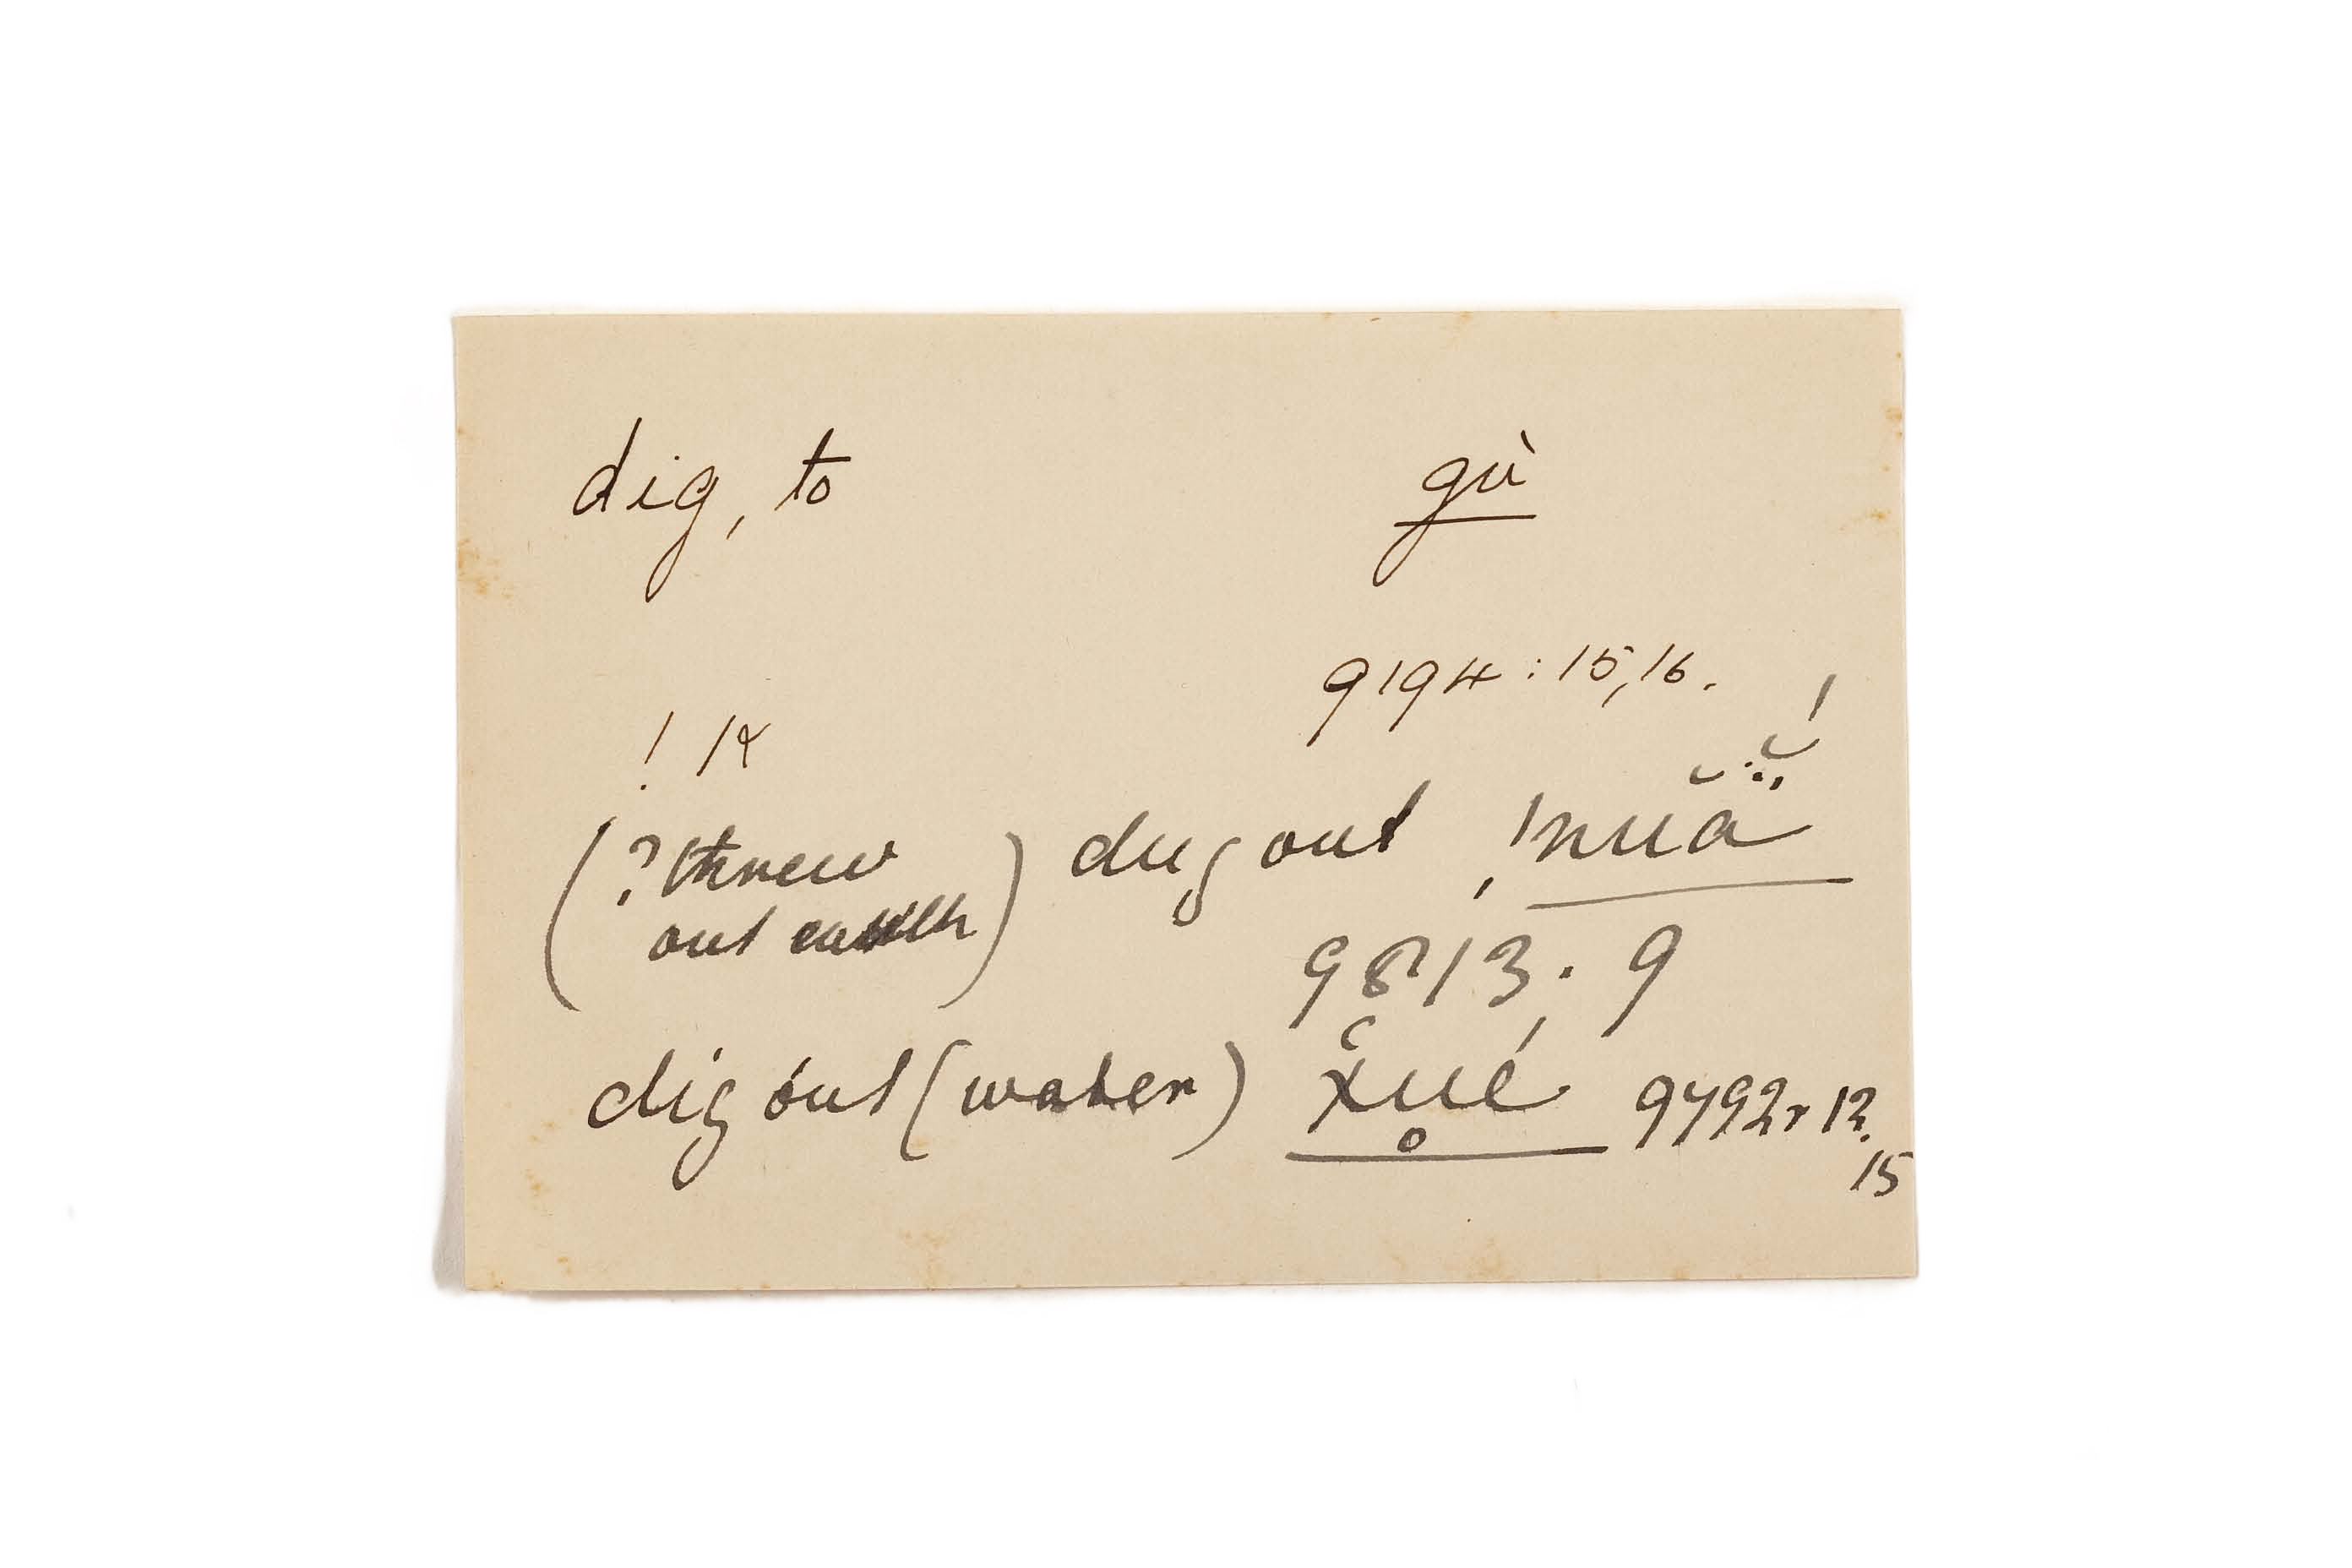 dig, to gù
9194 : 15, 16.
! K
(? threw dug out, !nuä
out earth) 9813 . 9
dig out (water) x̆u̥é 9492 r 12.
15